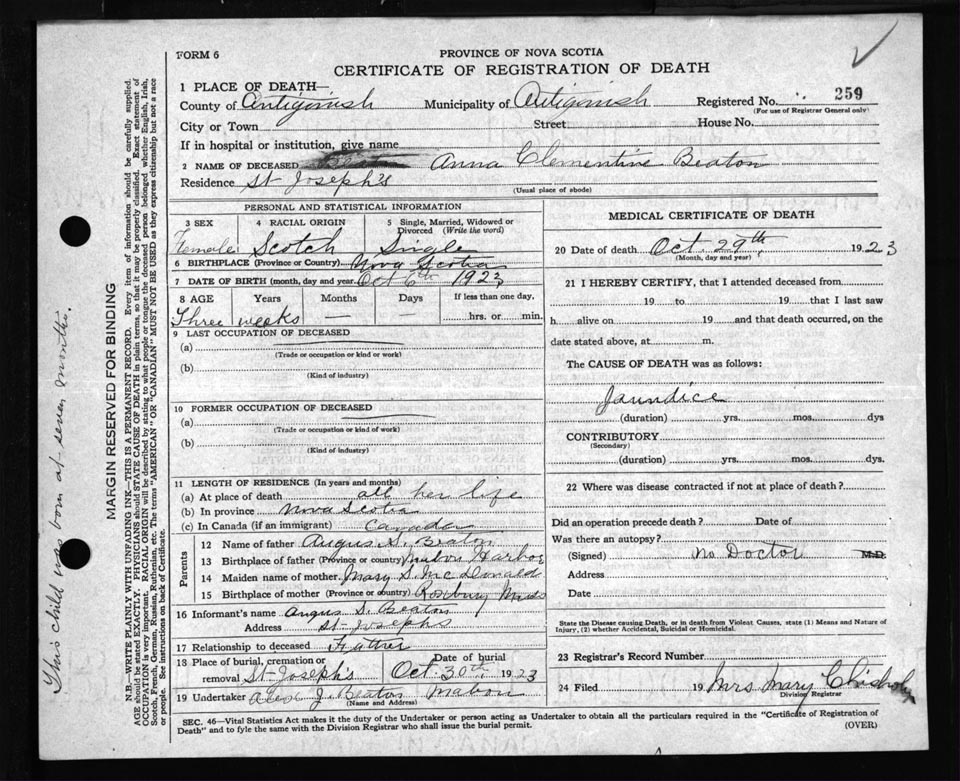 FORM 6
PROVINCE OF NOVA SCOTIA
CERTIFICATE OF REGISTRATION OF DEATH
1 PLACE OF DEATH—
County of Antigonish Municipality of Antigonish Registered No. 259
(For use of Registrar General only)
City or Town Street House No.
If in hospital or institution, give name
2 NAME OF DECEASED Anna Clementine Beaton
Residence St Joseph's
(Usual place of abode)
PERSONAL AND STATISTICAL INFORMATION
3 SEX 4 RACIAL ORIGIN 5 Single, Married, Widowed or Divorced (Write the word)
Female Scotch Single
6 BIRTHPLACE (Province or Country) Nova Scotia
7 DATE OF BIRTH (month, day and year) Oct 6th 1923
8 AGE Years Months Days If less than one day,
Three weeks — — hrs. or min.
9 LAST OCCUPATION OF DECEASED
(a)
(Trade or occupation or kind of work)
(b)
(Kind of industry)
10 FORMER OCCUPATION OF DECEASED
(a)
(Trade or occupation or kind of work)
(b)
(Kind of industry)
11 LENGTH OF RESIDENCE (In years and months)
(a) At place of death all her life
(b) In province Nova Scotia
(c) In Canada (if an immigrant) Canada
Parents
12 Name of father Angus S. Beaton
13 Birthplace of father (Province or country) Mabou Harbor
14 Maiden name of mother Mary S. McDonald
15 Birthplace of mother (Province or country) Roxbury Mass
16 Informant's name Angus S. Beaton
Address St Josephs
17 Relationship to deceased Father
18 Place of burial, cremation or removal St Joseph's Date of burial Oct. 30th 1923
19 Undertaker Alex J. Beaton Mabou
(Name and Address)
MEDICAL CERTIFICATE OF DEATH
20 Date of death Oct. 29th, 1923
(Month, day and year)
21 I HEREBY CERTIFY, that I attended deceased from
19 to 19 that I last saw
h alive on 19 and that death occurred, on the
date stated above, at m.
The CAUSE OF DEATH was as follows:
Jaundice
(duration) yrs. mos. dys
CONTRIBUTORY
(Secondary)
(duration) yrs. mos. dys.
22 Where was disease contracted if not at place of death?
Did an operation precede death? Date of
Was there an autopsy?
(Signed) No Doctor M.D.
Address
Date
State the Disease causing Death, or in death from Violent Causes, state (1) Means and Nature of
Injury, (2) whether Accidental, Suicidal or Homicidal.
23 Registrar's Record Number
24 Filed 19 Mrs Mary Chisholm
Division Registrar
SEC. 46—Vital Statistics Act makes it the duty of the Undertaker or person acting as Undertaker to obtain all the particulars required in the "Certificate of Registration of
Death" and to fyle the same with the Division Registrar who shall issue the burial permit.
(OVER)
MARGIN RESERVED FOR BINDING
N.B.—WRITE PLAINLY WITH UNFADING INK—THIS IS A PERMANENT RECORD. Every item of information should be carefully supplied.
AGE should be stated EXACTLY. PHYSICIANS should STATE CAUSE OF DEATH in plain terms, so that it may be properly classified. Exact statement of
OCCUPATION is very important. RACIAL ORIGIN will be described by stating to what people or tongue the deceased person belonged whether English, Irish,
Scotch, French, German, Russian, Ruthenian, etc. The terms "AMERICAN" OR "CANADIAN" MUST NOT BE USED as they express citizenship but not a race
or people. See instructions on back of Certificate.
This child was born at seven months.